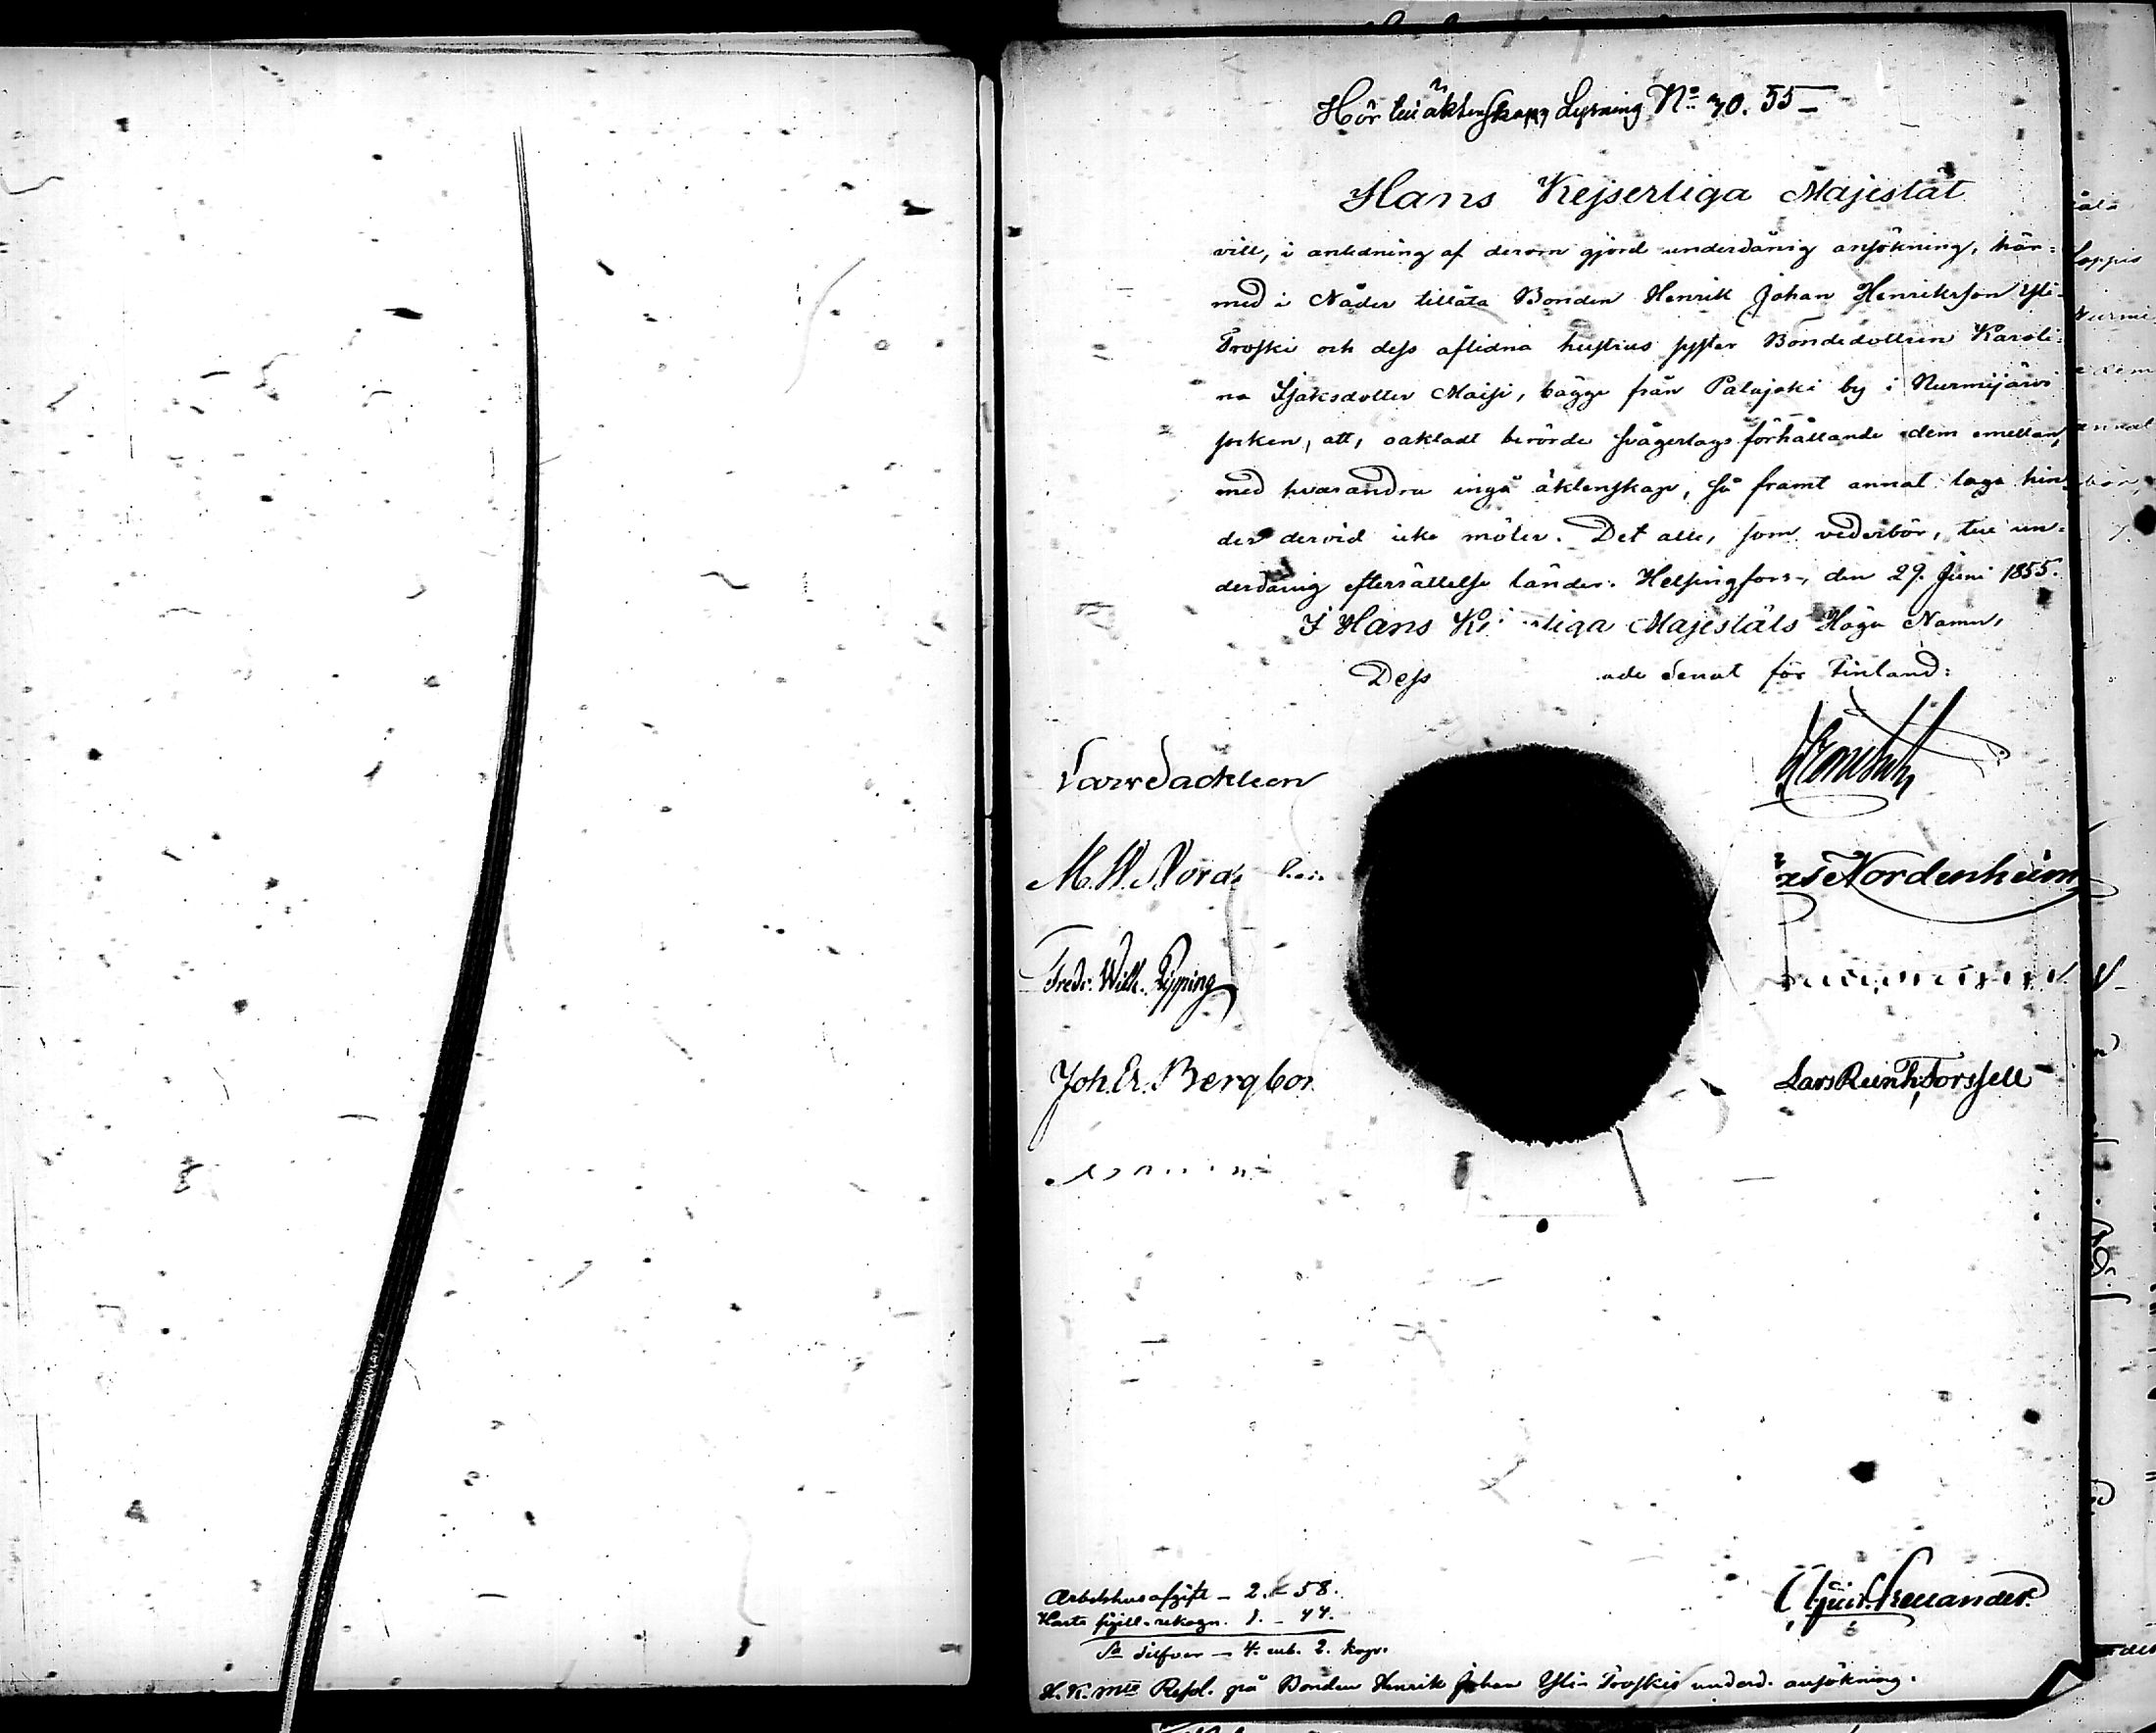 Hör till äktenskaps Lysning No 70. 55
Hans Kejserliga Majestät
vill, i anledning af derom gjord underdånig ansökning, här-
med i Nåder tillåta Bonden Henrik Johan Henriksson Yli-
Troski och dess aflidna hustrus syster Bondedottren Karoli-
na Isaksdotter Maisi, bägge från Palojoki by i Nurmijärvi
socken, att, oaktadt berörde svågerlags förhållande dem emellan,
med hvarandra ingå äktenskap, så framt annat laga hin-
der dervid icke möter. Det alle, som vederbör, till un-
derdånig efterrättelse länder. Helsingfors, den 29. Juni 1855.
I Hans Ke liga Majestäts Höga Namn,
Dess ade Senat för Finland:
Lars Sackleen
M. W. Nord
Nordenheim
Fredr. Wilh. Pipping
Joh. Er. Bergbo
Lars Reinh. Forssell
Arbetshusafgift – 2. – 58.
Karta sigill. rekogn. 1. – 44.
Sa Silfver – 4. rub. 2. kop.
H. K. Mts Resol. på Bonden Henrik Johan Yli-Troskis underd. ansökning.